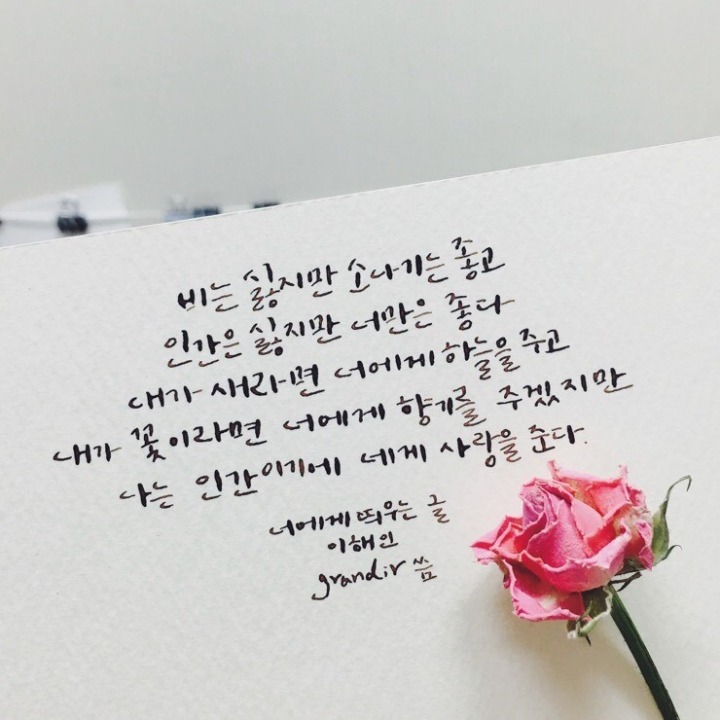 비는 싫지만 소나기는 좋고
인간은 싫지만 너만은 좋다
내가 새라면 너에게 하늘을 주고
내가 꽃이라면 너에게 향기를 주겠지만
나는 인간이기에 네게 사랑을 준다.
너에게 띄우는 글
이해인
grandir 씀